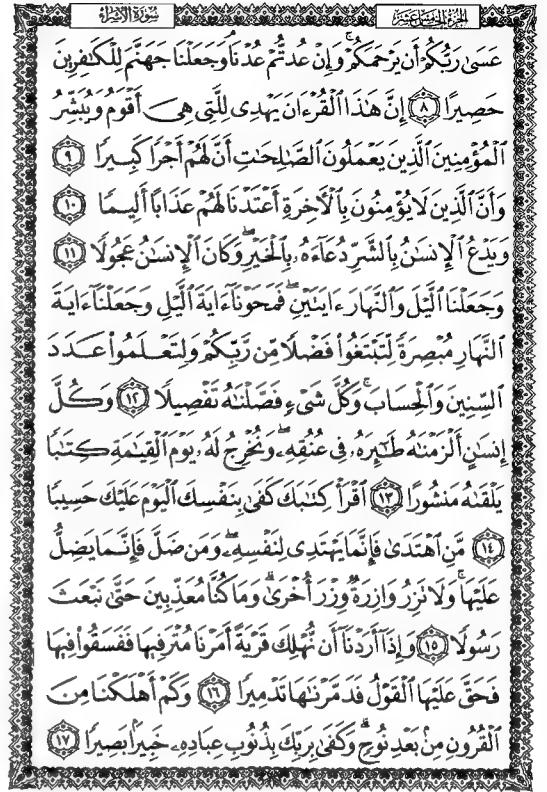 الجزء الخامس عشر سورة الإسراء
عَسَىٰ رَبُّكُمْ أَن يَرْحَمَكُمْ ۚ وَإِنْ عُدتُّمْ عُدْنَا ۘ وَجَعَلْنَا جَهَنَّمَ لِلْكَٰفِرِينَ
حَصِيرًا ٨ إِنَّ هَٰذَا ٱلْقُرْءَانَ يَهْدِى لِلَّتِى هِىَ أَقْوَمُ وَيُبَشِّرُ
ٱلْمُؤْمِنِينَ ٱلَّذِينَ يَعْمَلُونَ ٱلصَّٰلِحَٰتِ أَنَّ لَهُمْ أَجْرًا كَبِيرًا ٩
وَأَنَّ ٱلَّذِينَ لَا يُؤْمِنُونَ بِٱلْءَاخِرَةِ أَعْتَدْنَا لَهُمْ عَذَابًا أَلِيمًا ١٠
وَيَدْعُ ٱلْإِنسَٰنُ بِٱلشَّرِّ دُعَآءَهُۥ بِٱلْخَيْرِ ۖ وَكَانَ ٱلْإِنسَٰنُ عَجُولًا ١١
وَجَعَلْنَا ٱلَّيْلَ وَٱلنَّهَارَ ءَايَتَيْنِ ۖ فَمَحَوْنَآ ءَايَةَ ٱلَّيْلِ وَجَعَلْنَآ ءَايَةَ
ٱلنَّهَارِ مُبْصِرَةً لِّتَبْتَغُوا۟ فَضْلًا مِّن رَّبِّكُمْ وَلِتَعْلَمُوا۟ عَدَدَ
ٱلسِّنِينَ وَٱلْحِسَابَ ۚ وَكُلَّ شَىْءٍ فَصَّلْنَٰهُ تَفْصِيلًا ١٢ وَكُلَّ
إِنسَٰنٍ أَلْزَمْنَٰهُ طَٰٓئِرَهُۥ فِى عُنُقِهِۦ ۖ وَنُخْرِجُ لَهُۥ يَوْمَ ٱلْقِيَٰمَةِ كِتَٰبًا
يَلْقَىٰهُ مَنشُورًا ١٣ ٱقْرَأْ كِتَٰبَكَ كَفَىٰ بِنَفْسِكَ ٱلْيَوْمَ عَلَيْكَ حَسِيبًا
١٤ مَّنِ ٱهْتَدَىٰ فَإِنَّمَا يَهْتَدِى لِنَفْسِهِۦ ۖ وَمَن ضَلَّ فَإِنَّمَا يَضِلُّ
عَلَيْهَا ۚ وَلَا تَزِرُ وَازِرَةٌ وِزْرَ أُخْرَىٰ ۗ وَمَا كُنَّا مُعَذِّبِينَ حَتَّىٰ نَبْعَثَ
رَسُولًا ١٥ وَإِذَآ أَرَدْنَآ أَن نُّهْلِكَ قَرْيَةً أَمَرْنَا مُتْرَفِيهَا فَفَسَقُوا۟ فِيهَا
فَحَقَّ عَلَيْهَا ٱلْقَوْلُ فَدَمَّرْنَٰهَا تَدْمِيرًا ١٦ وَكَمْ أَهْلَكْنَا مِنَ
ٱلْقُرُونِ مِنۢ بَعْدِ نُوحٍ ۗ وَكَفَىٰ بِرَبِّكَ بِذُنُوبِ عِبَادِهِۦ خَبِيرًۢا بَصِيرًا ١٧